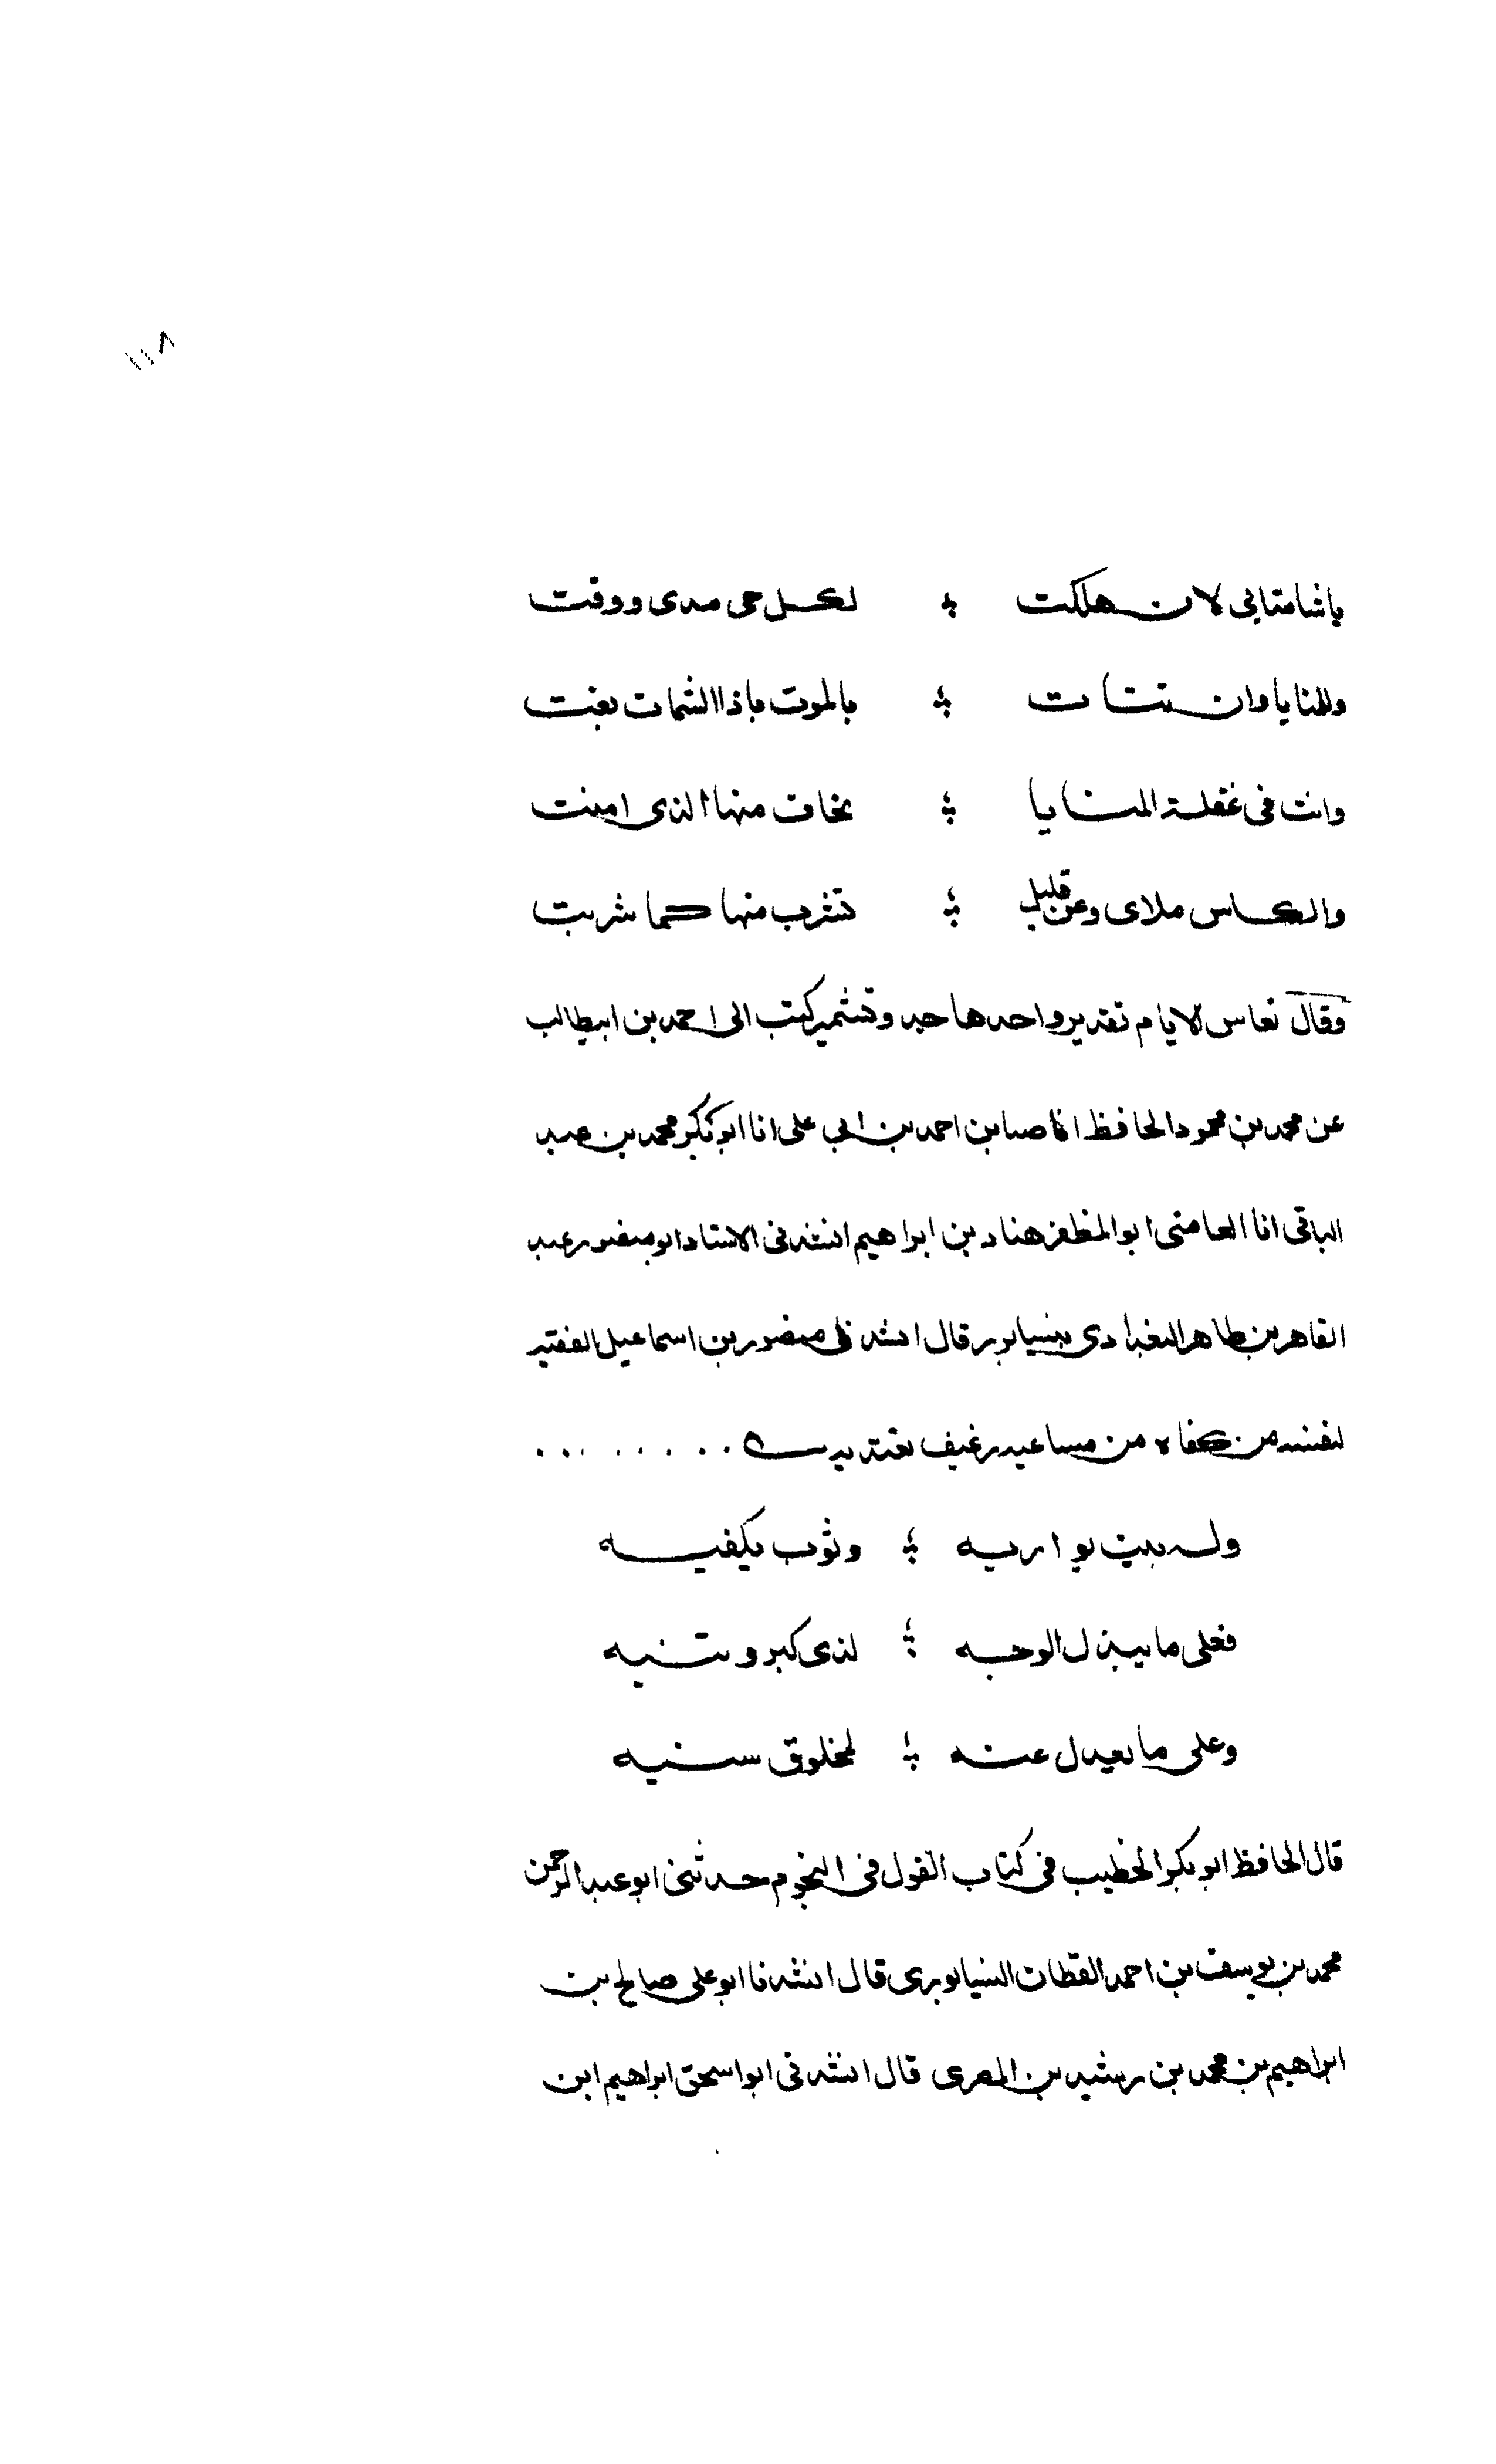 ١١٨
ياشامتا بى لان هلكت ؛ لكل حى مدى ووقت
وللمنايا وان تتات ؛ بالموت ياذا الشمات بغت
وانت فى غفلة المنايا ؛ يخاف منها الذى امنت
والكاس ملاى وعن قليل ؛ تشرب منها كما شربت
وقال الايام واحدها كتب الى احمد بن ابيطالب
عن محمد بن محمود الحافظ انا بن احمد بن ابى على انا ابو بكر محمد بن عبد
الباقى انا ابو المظفر هناد بن ابراهيم انشدنى الاستاد ابو منصور عبد
القاهر بن طاهر البغدادى بنيسابور قال انشدنى منصور بن اسماعيل الفقيه
لنفسه من كفاه من مساعيه رغيف يغتديه . . . . . . . .
وله بيت يواريه ؛ وثوب يكفيه
فعلى ما يبذل الوجه ؛ لذى كبر وتيه
وعلى ما يعدل عنه ؛ لمخلوق سنيه
قال الحافظ ابو بكر الخطيب فى كتاب القول فى النجوم حدثنى ابو عبد الرحمن
محمد بن يوسف بن احمد القطان النيسابورى قال انشدنا ابو على صالح بن
ابراهيم بن محمد بن رشيد بن المصرى قال انشدنى ابو اسحق ابراهيم ابن